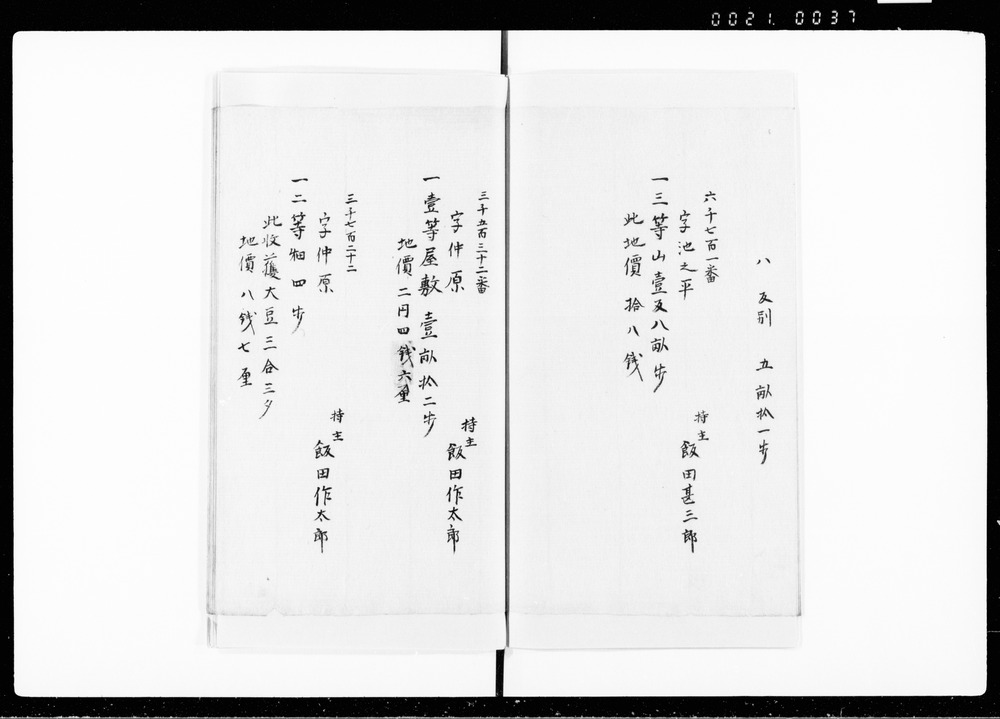 0021.0037
八 反別 五畝拾一歩
六千七百一番
字池之平
一三等山壹反八畝歩
持主 飯田甚三郎
此地價 拾八銭
三千五百三十二番
字仲原
一壹等屋敷 壹畝拾二歩
持主 飯田作太郎
地價 二円四銭六厘
三千七百二十二
字仲原
一二等畑四歩
持主 飯田作太郎
此收蘰大豆三合三夕
地價 八銭七厘